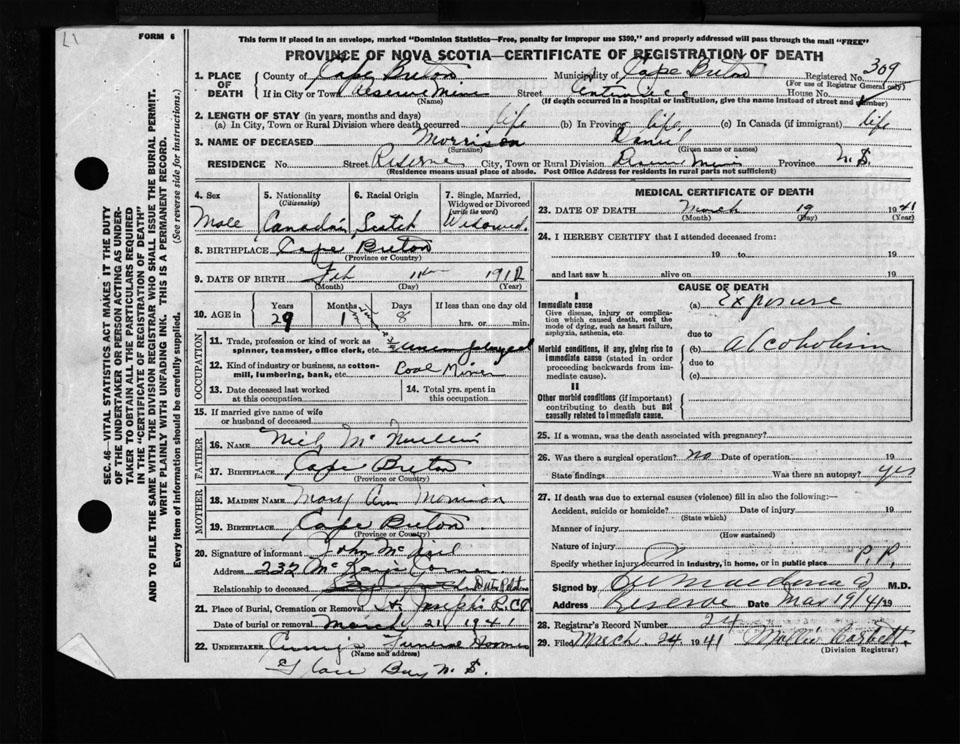 L1
FORM 6
This form if placed in an envelope, marked "Dominion Statistics—Free, penalty for improper use $300," and properly addressed will pass through the mail "FREE"
PROVINCE OF NOVA SCOTIA—CERTIFICATE OF REGISTRATION OF DEATH
1. PLACE OF DEATH
County of Cape Breton Municipality of Cape Breton Registered No. 309
(For use of Registrar General only)
If in City or Town Reserve Mines Street House No.
(Name) (If death occurred in a hospital or institution, give the name instead of street and number)
2. LENGTH OF STAY (in years, months and days)
(a) In City, Town or Rural Division where death occurred life (b) In Province life (c) In Canada (if immigrant) life
3. NAME OF DECEASED Morrison Daniel
(Surname) (Given name or names)
RESIDENCE No. Street Reserve City, Town or Rural Division Mines Province N.S.
(Residence means usual place of abode. Post Office Address for residents in rural parts not sufficient)
4. Sex 5. Nationality (Citizenship) 6. Racial Origin 7. Single, Married, Widowed or Divorced (write the word)
Male Canadian Scotch Widowed.
8. BIRTHPLACE Cape Breton
(Province or Country)
9. DATE OF BIRTH Feb 11th 1912
(Month) (Day) (Year)
10. AGE in Years Months Days If less than one day old
29 1 8 hrs. or min.
OCCUPATION
11. Trade, profession or kind of work as spinner, teamster, office clerk, etc. unemployed
12. Kind of industry or business, as cotton-mill, lumbering, bank, etc. Coal Miner
13. Date deceased last worked at this occupation 14. Total yrs. spent in this occupation
15. If married give name of wife or husband of deceased
FATHER
16. NAME Neil
17. BIRTHPLACE Cape Breton
(Province or Country)
MOTHER
18. MAIDEN NAME Mary Ann Morrison
19. BIRTHPLACE Cape Breton
(Province or Country)
20. Signature of informant John
Address 232 Corner
Relationship to deceased
21. Place of Burial, Cremation or Removal St. Joseph's R.C.
Date of burial or removal March 21 1941
22. UNDERTAKER Funeral Home
(Name and address)
Glace Bay N.S.
MEDICAL CERTIFICATE OF DEATH
23. DATE OF DEATH March 19 1941
(Month) (Day) (Year)
24. I HEREBY CERTIFY that I attended deceased from:
19 to 19
and last saw h alive on 19
CAUSE OF DEATH
I
Immediate cause (a) Exposure
Give disease, injury or complication which caused death, not the mode of dying, such as heart failure, asphyxia, asthenia, etc.
due to
Morbid conditions, if any, giving rise to immediate cause (stated in order proceeding backwards from immediate cause).
(b) alcoholism
due to
(c)
II
Other morbid conditions (if important) contributing to death but not causally related to immediate cause.
25. If a woman, was the death associated with pregnancy?
26. Was there a surgical operation? no Date of operation 19
State findings Was there an autopsy? yes
27. If death was due to external causes (violence) fill in also the following:—
Accident, suicide or homicide? Date of injury 19
(State which)
Manner of injury
(How sustained)
Nature of injury
Specify whether injury occurred in industry, in home, or in public place P.P.
Signed by M.D.
Address Reserve Date Mar 19/41 19
28. Registrar's Record Number 24
29. Filed March 24 1941 Corbett
(Division Registrar)
SEC. 46—VITAL STATISTICS ACT MAKES IT THE DUTY
OF THE UNDERTAKER OR PERSON ACTING AS UNDER-
TAKER TO OBTAIN ALL THE PARTICULARS REQUIRED
IN THE "CERTIFICATE OF REGISTRATION OF DEATH"
AND TO FILE THE SAME WITH THE DIVISION REGISTRAR WHO SHALL ISSUE THE BURIAL PERMIT.
WRITE PLAINLY WITH UNFADING INK. THIS IS A PERMANENT RECORD.
Every item of information should be carefully supplied. (See reverse side for instructions.)